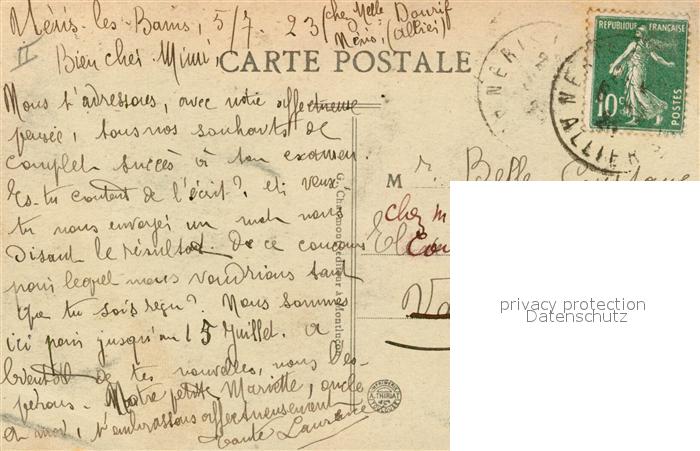 Néris-les-Bains, 5/7. 23 (chez Melle Dourif
Néris. (Allier)
II
Bien cher Mimi,
CARTE POSTALE
REPUBLIQUE FRANÇAISE
10c
POSTES
NERIS
ALLIER
Nous t'adressons, avec notre affectueuse
pensée, tous nos souhaits de
complet succès à ton examen.
Es-tu content de l'écrit? et veux
tu nous envoyer un mot nous
disant le résultat de ce concours
pour lequel nous voudrions tant
que tu sois reçu? Nous sommes
ici pour jusqu'au 15 Juillet. A
bientôt de tes nouvelles, nous l'es-
pérons. Notre petite Mariette, oncle
et moi, t'embrassons affectueusement
Tante Laurence
M
r. Belle
chez m
Cou
G. Chaumont, éditeur à Montluçon
privacy protection
Datenschutz